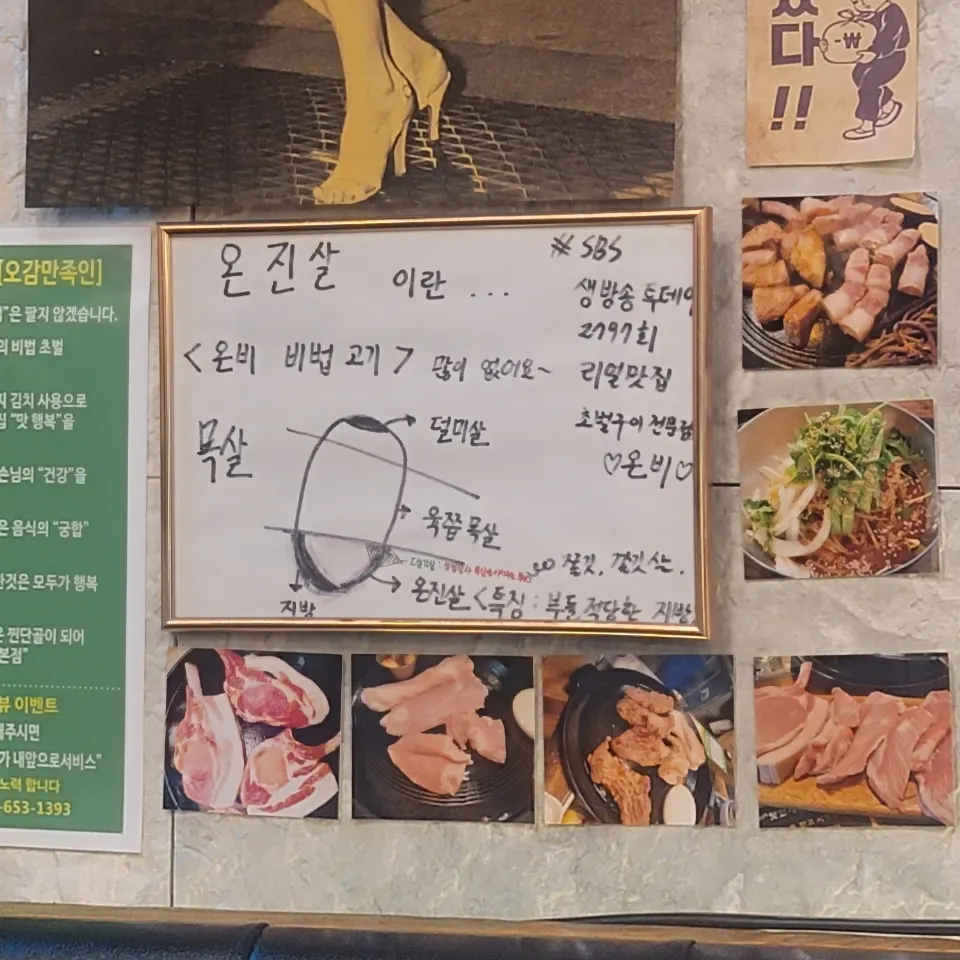 다
!!
₩
[오감만족인]
"은 팔지 않겠습니다.
의 비법 초벌
지 김치 사용으로
집 "맛 행복"을
손님의 "건강"을
은 음식의 "궁합"
한것은 모두가 행복
은 찐단골이 되어
본점"
뷰 이벤트
해주시면
가 내앞으로서비스"
노력 합니다
-653-1393
온진살 이란 ...
<온비 비법 고기> 많이 없어요~
목살
덜미살
육쫍목살
온진살 <특징: 부들 적당한 지방
쫄깃, 깔깃스는.
지방
※ SBS
생방송 투데이
2797회
리얼맛집
초벌구이 전문점
♡온비♡